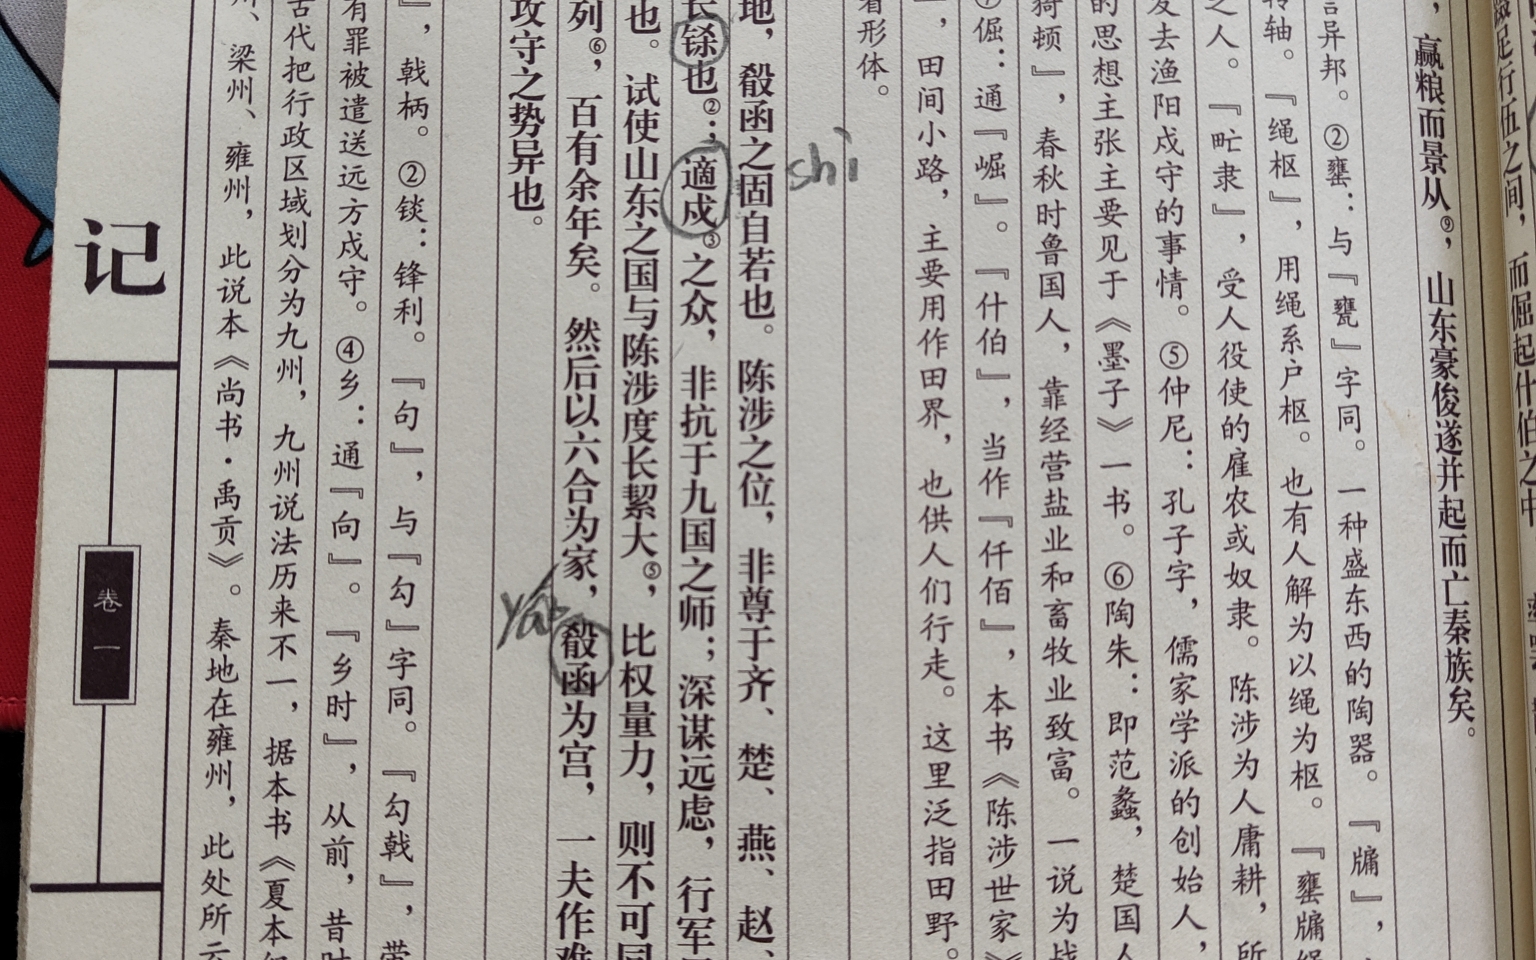 而倔起什伯之中
蹑足行伍之间，
，赢粮而景从⑨，山东豪俊遂并起而亡秦族矣。
异邦。②罋：与『甕』字同。一种盛东西的陶器。『牖』，
转轴。『绳枢』，用绳系户枢。也有人解为以绳为枢。『罋牖绳
之人。『甿隶』，受人役使的雇农或奴隶。陈涉为人庸耕，所
发去渔阳戍守的事情。⑤仲尼：孔子字，儒家学派的创始人，
的思想主张主要见于《墨子》一书。⑥陶朱：即范蠡，楚国人
猗顿』，春秋时鲁国人，靠经营盐业和畜牧业致富。一说为战
⑦倔：通『崛』。『什伯』，当作『仟佰』，本书《陈涉世家》
，田间小路，主要用作田界，也供人们行走。这里泛指田野。
着形体。
shi
地，殽函之固自若也。陈涉之位，非尊于齐、楚、燕、赵、
长铩也②；適戍③之众，非抗于九国之师；深谋远虑，行军
也。试使山东之国与陈涉度长絜大⑤，比权量力，则不可同
列⑥，百有余年矣。然后以六合为家，殽函为宫，一夫作难
攻守之势异也。
』，戟柄。②锬：锋利。『句』，与『勾』字同。『勾戟』，带
有罪被遣送远方戍守。④乡：通『向』。『乡时』，从前，昔时
古代把行政区域划分为九州，九州说法历来不一，据本书《夏本纪
州、梁州、雍州，此说本《尚书·禹贡》。秦地在雍州，此处所云
记
卷一